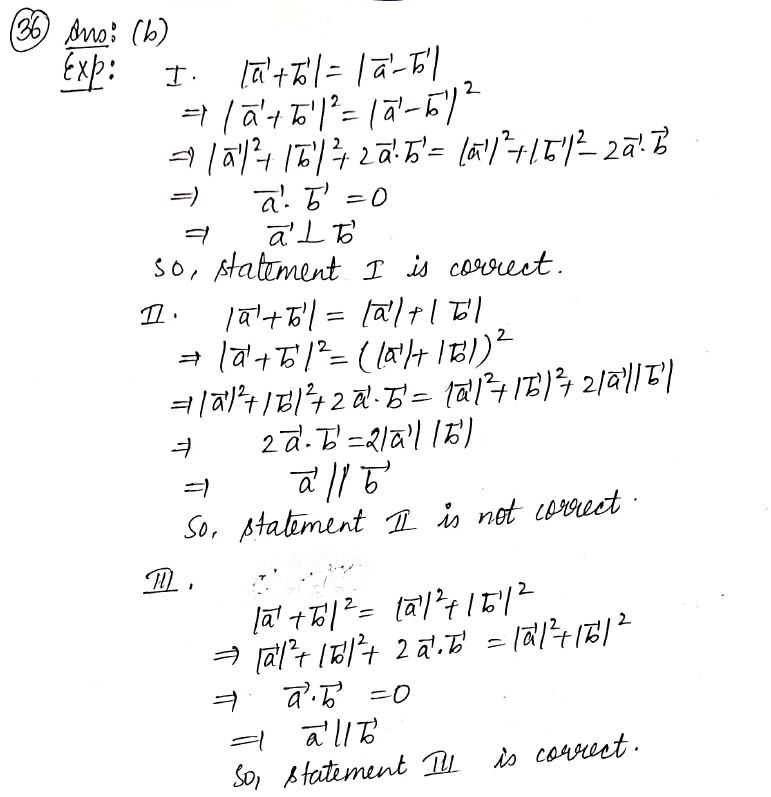 (36) Ans: (b)
Exp: I. |a⃗+b⃗| = |a⃗-b⃗|
⇒ |a⃗+b⃗|² = |a⃗-b⃗|²
⇒ |a⃗|²+|b⃗|²+2a⃗.b⃗ = |a⃗|²+|b⃗|²-2a⃗.b⃗
⇒ a⃗.b⃗ = 0
⇒ a⃗⊥b⃗
So, statement I is correct.
II. |a⃗+b⃗| = |a⃗|+|b⃗|
⇒ |a⃗+b⃗|² = (|a⃗|+|b⃗|)²
⇒ |a⃗|²+|b⃗|²+2a⃗.b⃗ = |a⃗|²+|b⃗|²+2|a⃗||b⃗|
⇒ 2a⃗.b⃗ = 2|a⃗||b⃗|
⇒ a⃗ || b⃗
So, statement II is not correct.
III.
|a⃗+b⃗|² = |a⃗|²+|b⃗|²
⇒ |a⃗|²+|b⃗|²+2a⃗.b⃗ = |a⃗|²+|b⃗|²
⇒ a⃗.b⃗ = 0
⇒ a⃗ || b⃗
So, statement III is correct.